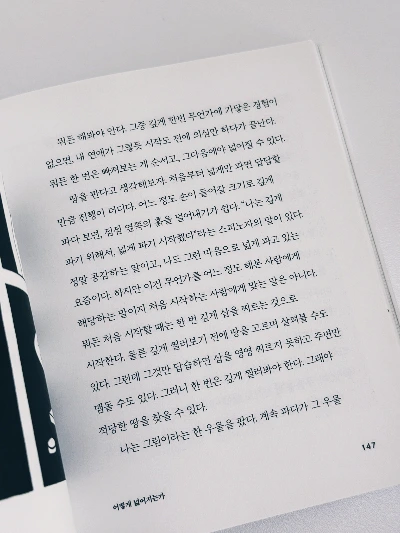 뭐든 해봐야 안다. 그중 깊게 한번 무언가에 가닿은 경험이
없으면, 내 연애가 그렇듯 시작도 전에 의심만 하다가 끝난다.
뭐든 한 번은 빠져보는 게 순서고, 그다음에야 넓어질 수 있다.
땅을 판다고 생각해보자. 처음부터 넓게만 파면 답답할
만큼 진행이 더디다. 어느 정도 손이 들어갈 크기로 깊게
파다 보면, 점점 옆쪽의 흙을 덜어내기가 쉽다. "나는 깊게
파기 위해서, 넓게 파기 시작했다"라는 스피노자의 말이 있다.
정말 공감하는 말이고, 나도 그런 마음으로 넓게 파고 있는
요즘이다. 하지만 이건 무언가를 어느 정도 해본 사람에게
해당하는 말이지 처음 시작하는 사람에게 맞는 말은 아니다.
뭐든 처음 시작할 때는 한 번 깊게 삽을 찌르는 것으로
시작한다. 물론 깊게 찔러보기 전에 땅을 고르며 살펴볼 수도
있다. 그런데 그것만 답습하면 삽을 영영 찌르지 못하고 주변만
맴돌 수도 있다. 그러니 한 번은 깊게 찔러봐야 한다. 그래야
적당한 땅을 찾을 수 있다.
나는 그림이라는 한 우물을 팠다. 계속 파다가 그 우물
147
어떻게 넓어지는가